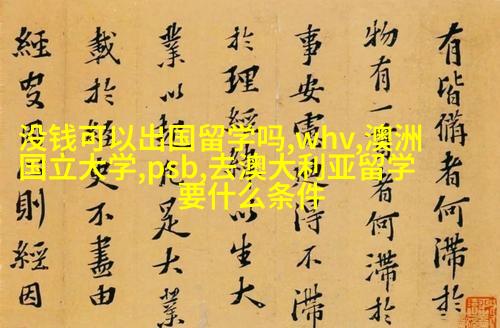 没钱可以出国留学吗,whv,澳洲
国立大学,psb,去澳大利亚留学
要什么条件
有皆備者何滯於
物有一者何滯於
事安得不滯
於理經以生大
業以足大業
載於史不盡由
經則經因